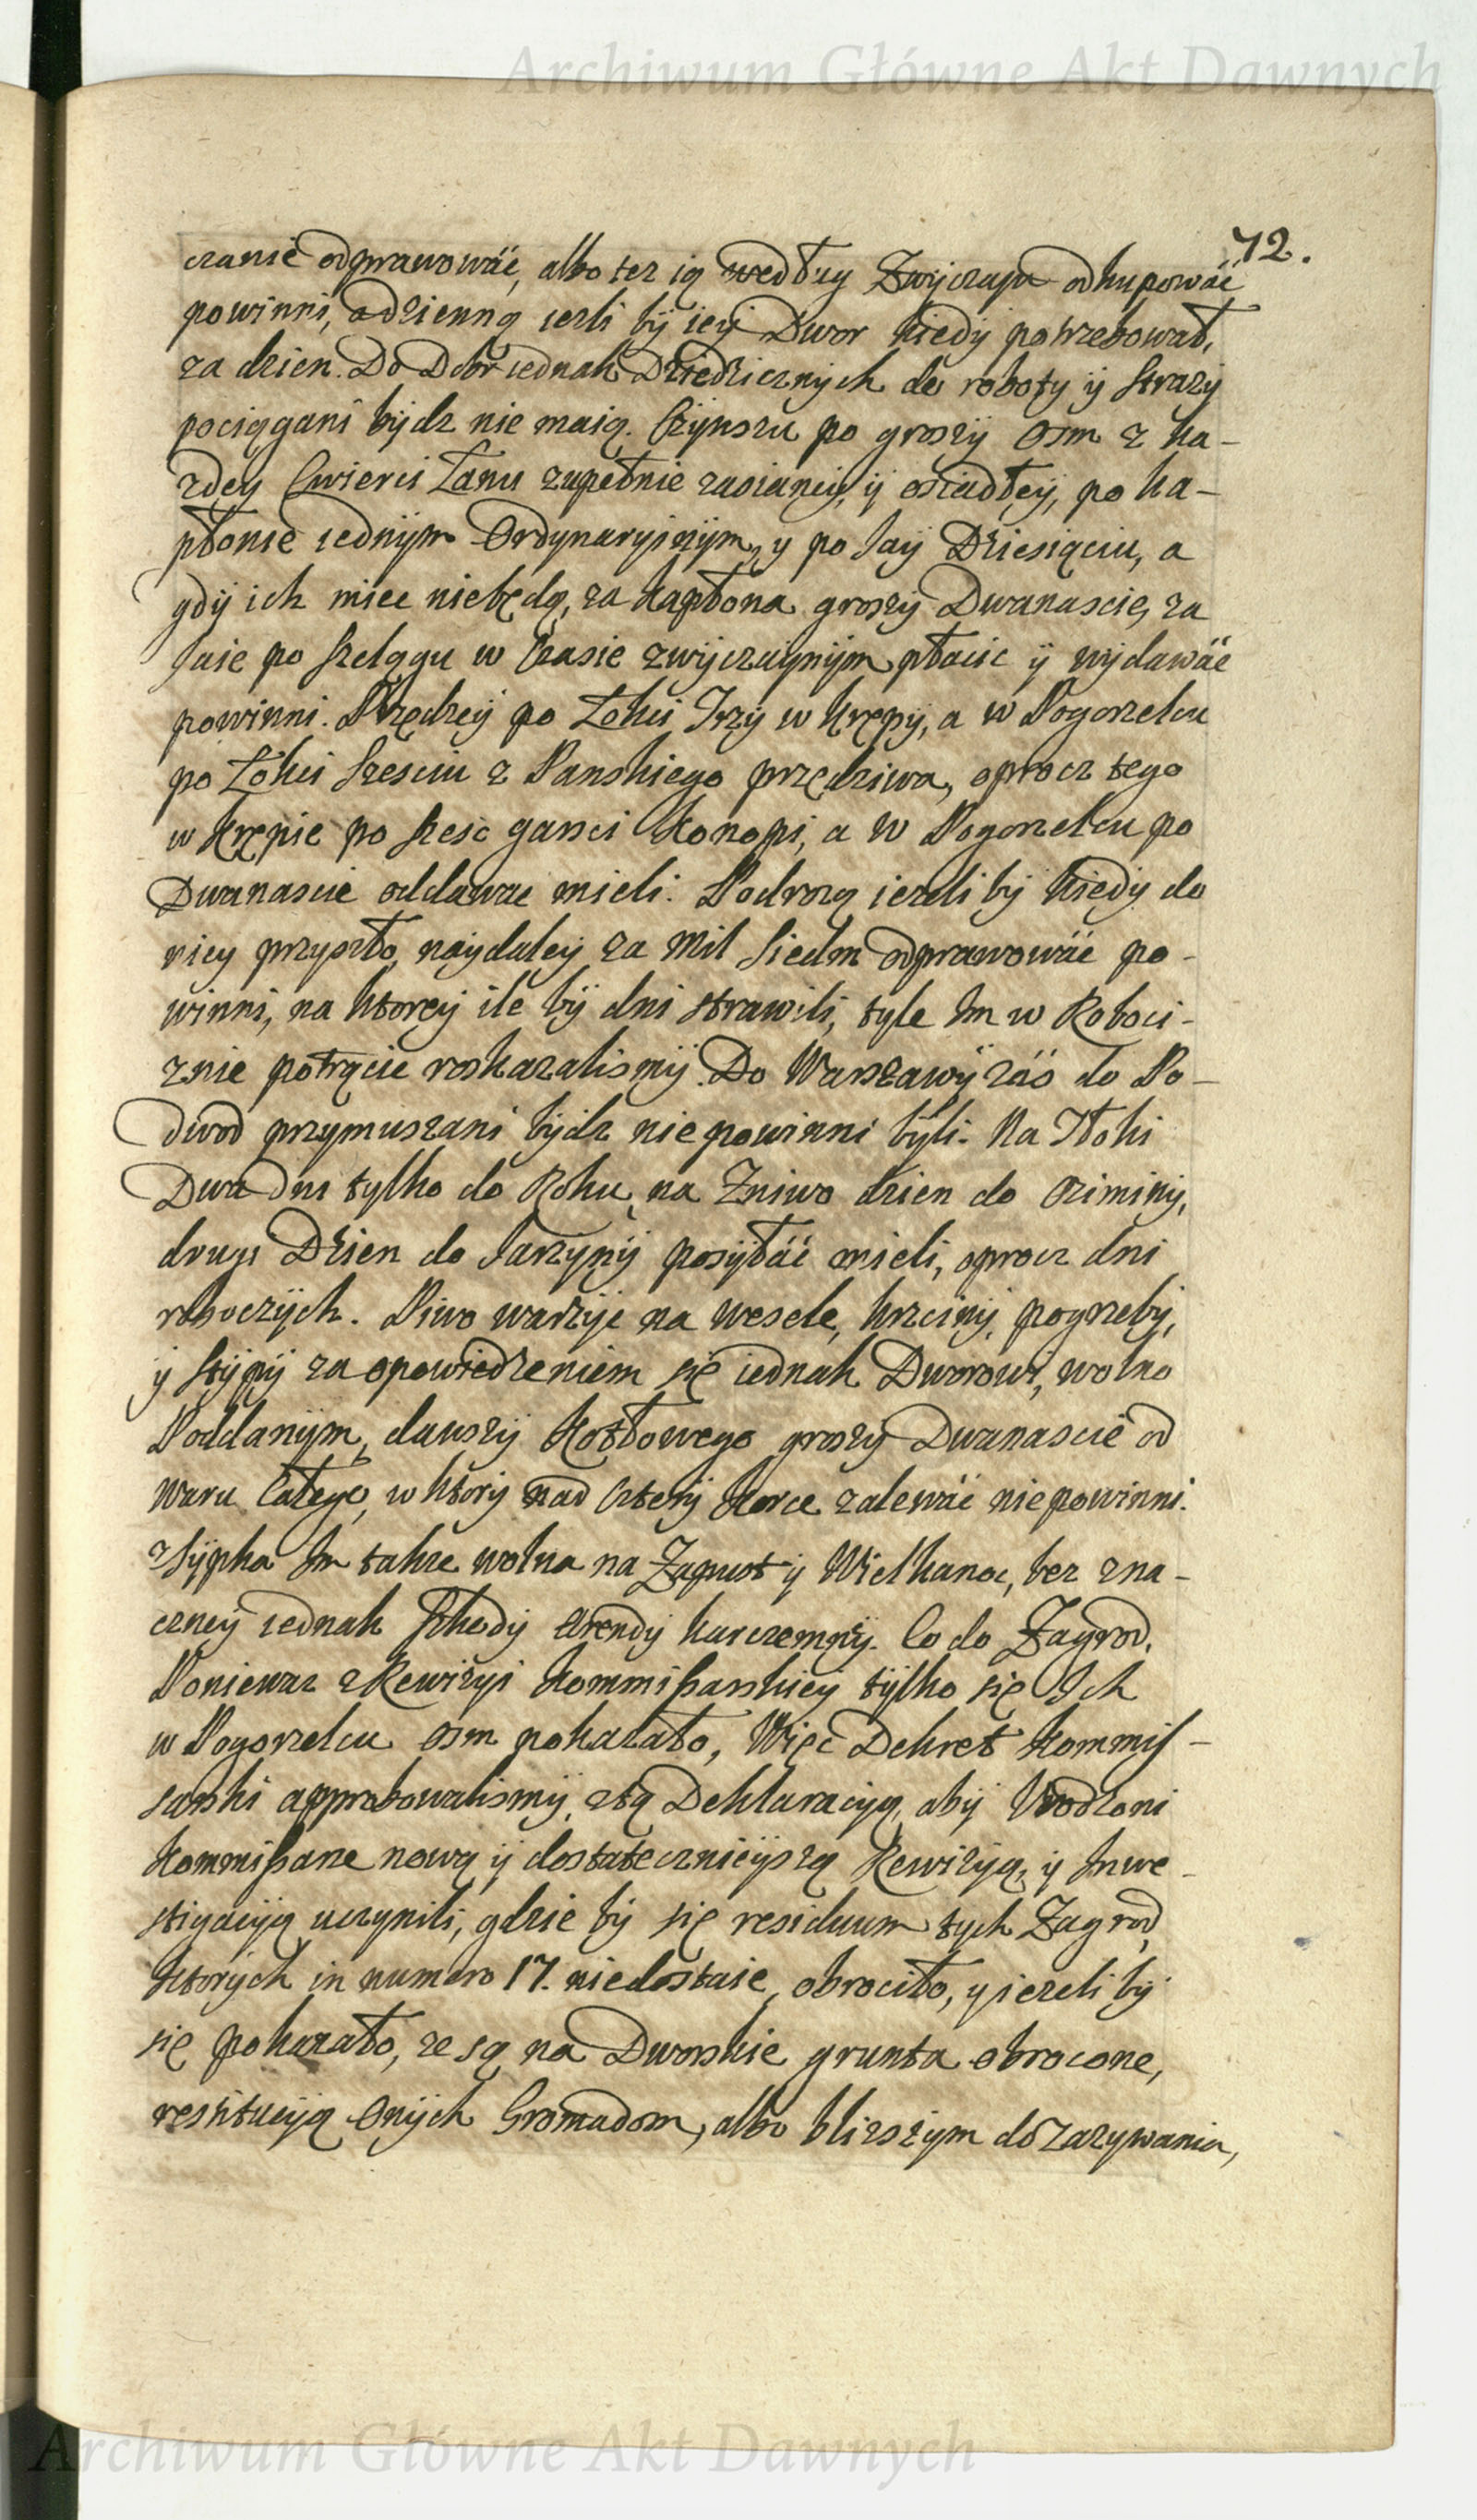 Archiwum Główne Akt Dawnych
72.
czanie odprawowáć, albo tez ią według Zwyczaiu odkupowáć
powinni, a dzienną iezli by iey Dwor kiedy potrzebował,
za dzien. Do Dobr iednak Dziedzicznych do roboty y strazy
pociągani bydz nie maią. Czynszu po groszy osm z ka-
zdey cwierci Łanu zupełnie zasianey, y osiadłey, po ka-
płonie iednym Ordynaryinym, y po Iay Dziesiąciu, a
gdy ich miec niebędą, za kapłona groszy Dwanascie, za
Iaie po szelągu w Czasie zwyczaynym płacic y wydawáć
powinni. Przędzey po Łokci Trzy w Krępy, a w Pogorzelcu
po Łokci szesciu z Panskiego przędziwa, oprocz tego
w Krępie po szesc garsci Konopi, a w Pogorzelcu po
Dwanascie oddawac mieli. Podrozą iezeli by kiedy do
niey przyszło, naydaley za Mil Siedm odprawowáć po-
winni, na ktorey ile by dni strawili, tyle Im w Roboci-
znie potrącic roskazalismy. Do Warszawy záś do Po-
dwod przymuszani bydz niepowinni byli. Na Tłoki
Dwa Dni tylko do Roku, na Zniwo dzien do Oziminy,
drugi Dzien do Iarzyny posyłáć mieli, oprocz dni
roboczych. Piwo warzyc na wesele, krzciny, pogrzeby,
y stypy za opowiedzeniem się iednak Dworowi, wolno
Poddanym, dawszy Kotłowego groszy Dwanascie od
waru Całego, w ktory nad Cztery Korce zalewáć niepowinni.
Zsypka Im takze wolna na Zapust y Wielkanoc, bez zna-
czney iednak szkody Arendy karczemny. Co do Zagrod,
Poniewaz z Rewizyi Kommissarskiey tylko się Ich
w Pogorzelcu osm pokazało, Więc Dekret Kommis-
sarski approbowalismy, ztą Deklaracyą, aby Urodzoni
Kommissarze nową y dostatecznieyszą Rewizyą, y Inwe-
stigacyją uczynili, gdzie by się residuum tych Zagrod,
ktorych in numero 17. niedostaie, obrociło, y iezeli by
się pokazało, ze są na Dworskie grunta obrocone,
restitucyją Onych Gromadom, albo blizszym do Zazywania,
Archiwum Główne Akt Dawnych